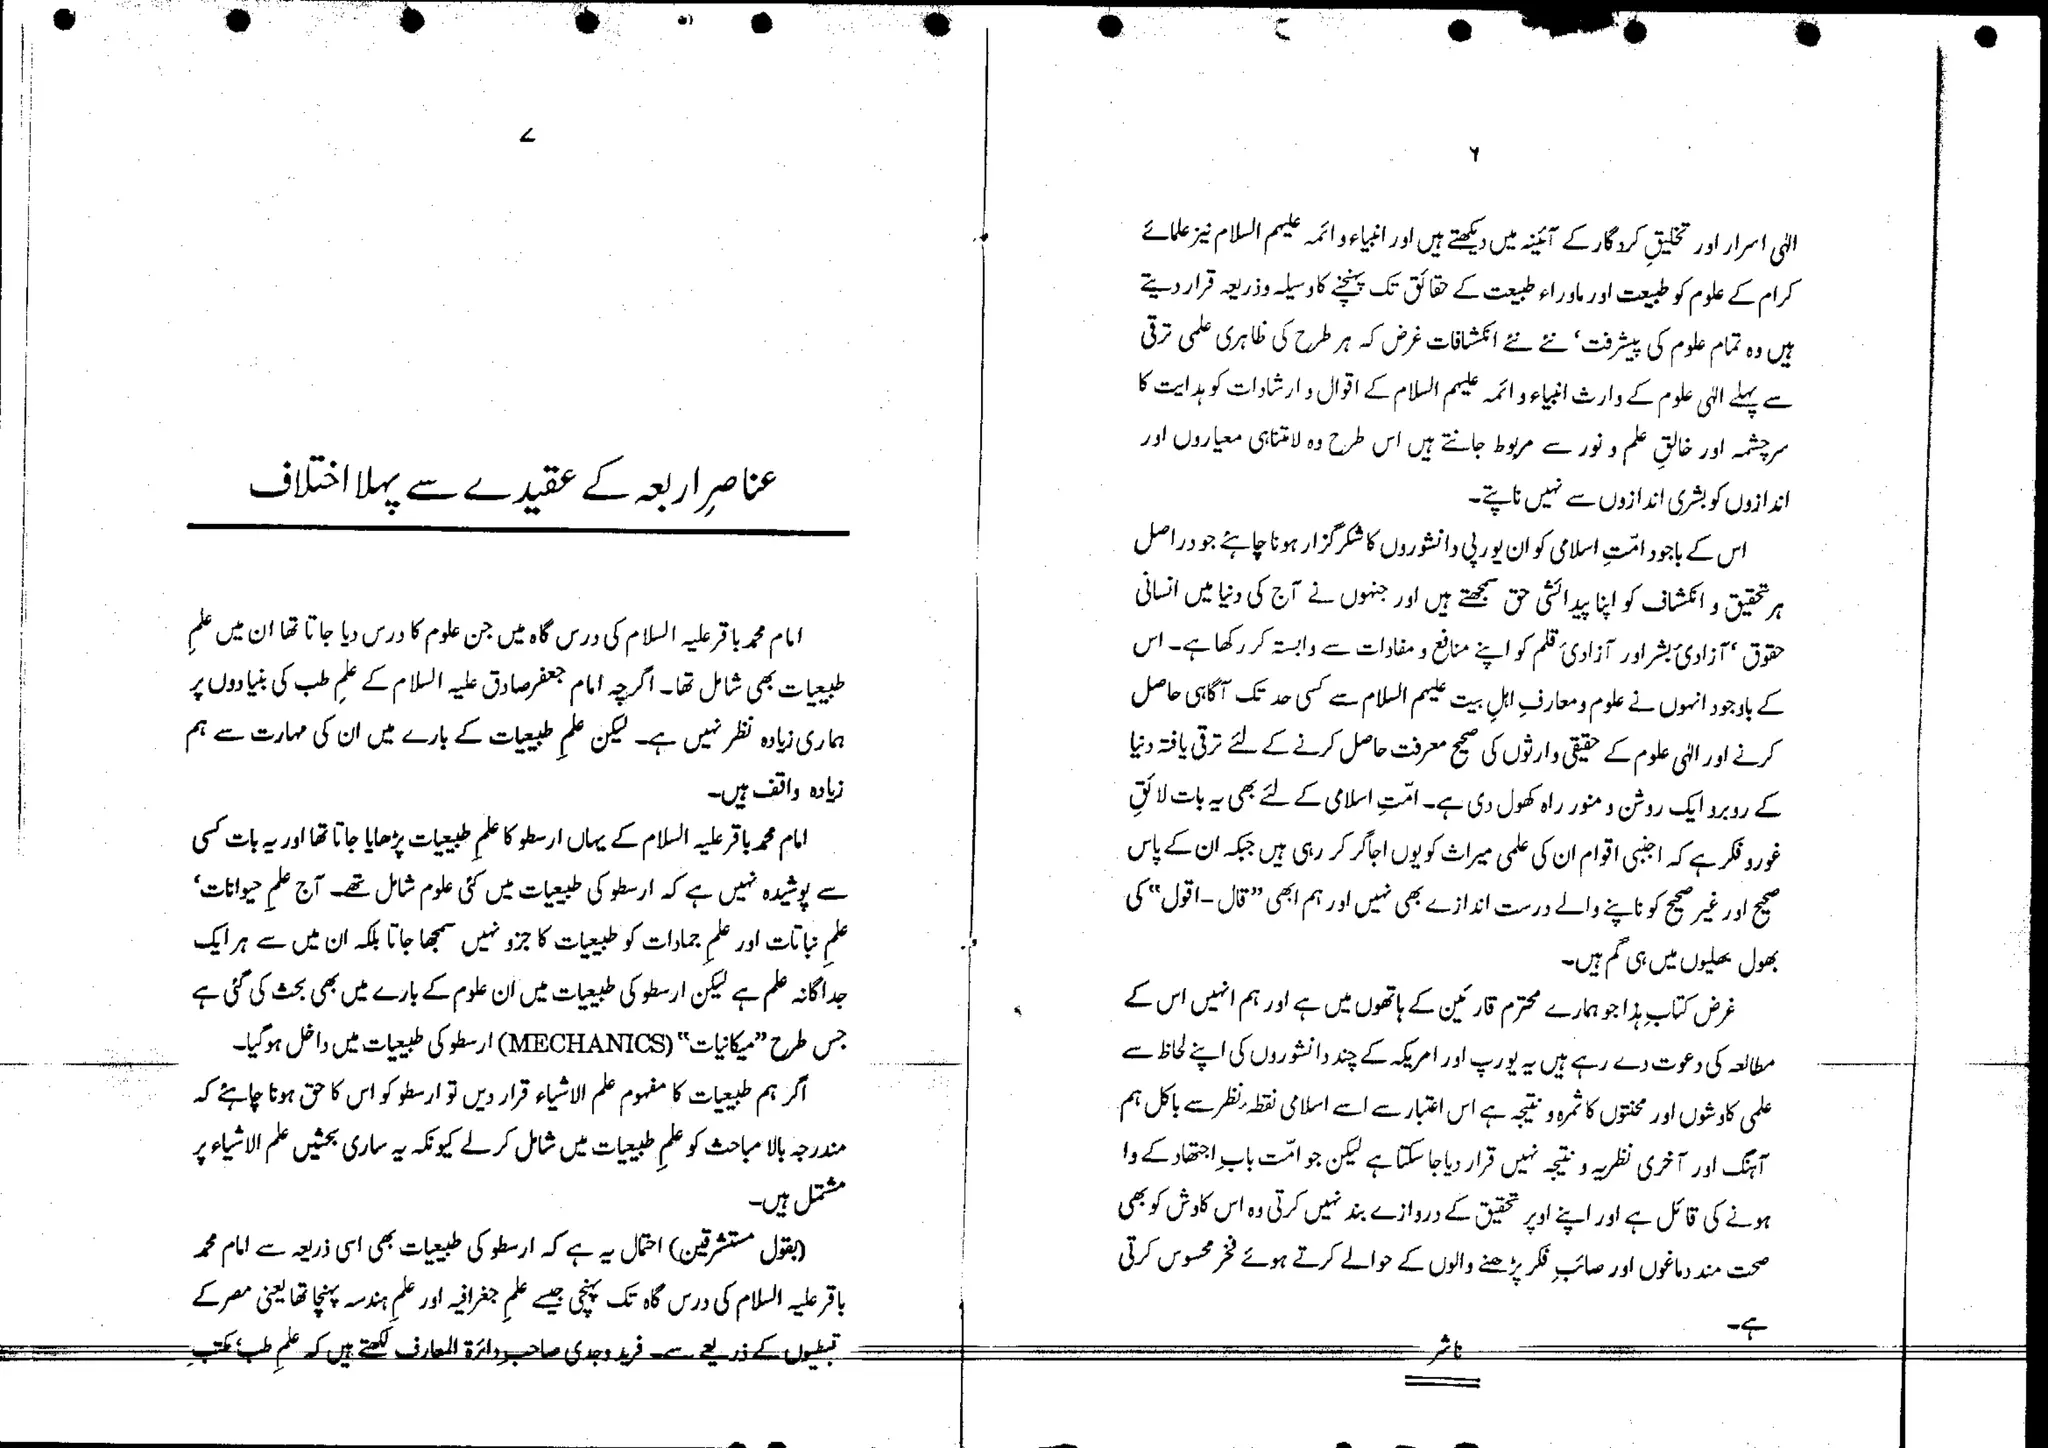 ۶
الٰہی اسرار اور تخلیقِ کردگار کے آئینہ میں دیکھتے ہیں اور انبیاء و ائمہ علیہم السلام نیز علمائے
کرام کے علوم کو طبیعت اور ماوراء طبیعت کے حقائق تک پہنچنے کا وسیلہ و ذریعہ قرار دیتے
ہیں وہ تمام علوم کی پیشرفت، نئے نئے انکشافات غرض کہ ہر طرح کی ظاہری علمی ترقی
سے پہلے الٰہی علوم کے وارث انبیاء و ائمہ علیہم السلام کے اقوال و ارشادات کو ہدایت کا
سرچشمہ اور خالقِ علم و نور سے مربوط جانتے ہیں اس طرح وہ لامتناہی معیاروں اور
اندازوں کو بشری اندازوں سے نہیں ناپتے۔
اس کے باجود امّتِ اسلامی کو ان یورپی دانشوروں کا شکر گزار ہونا چاہئے جو دراصل
ہر تحقیق و انکشاف کو اپنا پیدائشی حق سمجھتے ہیں اور جنہوں نے آج کی دنیا میں انسانی
حقوق، آزادیٔ بشر اور آزادیٔ قلم کو اپنے منافع و مفادات سے وابستہ کر رکھا ہے۔ اس
کے باوجود انہوں نے علوم و معارفِ اہلِ بیت علیہم السلام سے کسی حد تک آگاہی حاصل
کرنے اور الٰہی علوم کے حقیقی وارثوں کی صحیح معرفت حاصل کرنے کے لئے ترقی یافتہ دنیا
کے روبرو ایک روشن و منور راہ کھول دی ہے۔ امّتِ اسلامی کے لئے بھی یہ بات لائقِ
غور و فکر ہے کہ اجنبی اقوام ان کی علمی میراث کو یوں اجاگر کر رہی ہیں جبکہ ان کے پاس
صحیح اور غیر صحیح کو ناپنے والے درست اندازے بھی نہیں اور ہم ابھی ”قال-اقول“ کی
بھول بھلیوں میں ہی گم ہیں۔
غرض کتابِ ہذا جو ہمارے محترم قارئین کے ہاتھوں میں ہے اور ہم انہیں اس کے
مطالعہ کی دعوت دے رہے ہیں یہ یورپ اور امریکہ کے چند دانشوروں کی اپنے لحاظ سے
علمی کاوشوں اور محنتوں کا ثمرہ و نتیجہ ہے اس اعتبار سے اسے اسلامی نقطۂ نظر سے باکل ہم
آہنگ اور آخری نظریہ و نتیجہ نہیں قرار دیا جا سکتا ہے لیکن جو امّت بابِ اجتہاد کے وا
ہونے کی قائل ہے اور اپنے اوپر تحقیق کے دروازے بند نہیں کرتی وہ اس کاوش کو بھی
صحت مند دماغوں اور صائبِ فکر پڑھنے والوں کے حوالے کرتے ہوئے فخر محسوس کرتی
ہے۔
ناشر
۷
عناصرِ اربعہ کے عقیدے سے پہلا اختلاف
امام محمد باقر علیہ السلام کی درس گاہ میں جن علوم کا درس دیا جاتا تھا ان میں علمِ
طبیعیات بھی شامل تھا۔ اگرچہ امام جعفر صادق علیہ السلام کے علمِ طب کی بنیادوں پر
ہماری زیادہ نظر نہیں ہے۔ لیکن علمِ طبیعیات کے بارے میں ان کی مہارت سے ہم
زیادہ واقف ہیں۔
امام محمد باقر علیہ السلام کے یہاں ارسطو کا علمِ طبیعیات پڑھایا جاتا تھا اور یہ بات کسی
سے پوشیدہ نہیں ہے کہ ارسطو کی طبیعیات میں کئی علوم شامل تھے۔ آج علمِ حیوانات،
علمِ نباتات اور علمِ جمادات کو طبیعیات کا جزو نہیں سمجھا جاتا بلکہ ان میں سے ہر ایک
جداگانہ علم ہے لیکن ارسطو کی طبیعیات میں ان علوم کے بارے میں بھی بحث کی گئی ہے
جس طرح ”میکانیات“ (MECHANICS) ارسطو کی طبیعیات میں داخل ہو گیا۔
اگر ہم طبیعیات کا مفہوم علم الاشیاء قرار دیں تو ارسطو کو اس کا حق ہونا چاہئے کہ
مندرجہ بالا مباحث کو علمِ طبیعیات میں شامل کر لے کیونکہ یہ ساری بحثیں علم الاشیاء پر
مشتمل ہیں۔
(بقول مستشرقین) احتمال یہ ہے کہ ارسطو کی طبیعیات بھی اسی ذریعہ سے امام محمد
باقر علیہ السلام کی درس گاہ تک پہنچی جیسے علمِ جغرافیہ اور علمِ ہندسہ پہنچا تھا یعنی مصر کے
قبطیوں کے ذریعے سے۔ فرید وجدی صاحبِ دائرۃ المعارف لکھتے ہیں کہ علمِ طب، مکتبِ